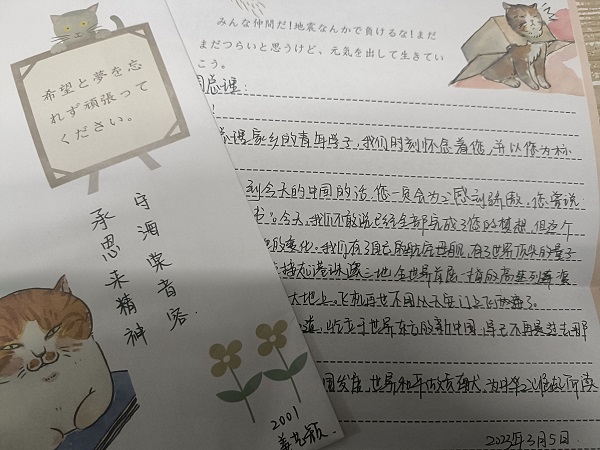 希望と夢を忘
れず頑張って
ください。
承思来精神
2001
みんな仲間だ!地震なんかで負けるな!まだ
まだつらいと思うけど、元気を出して生きてい
こう。
总理:
总理家乡的青年学子,我们时刻怀念着您,并以您为标
到今天的中国的话,您一定会为之感到骄傲。您常说
书。今天,我们不敢说已经全部完成了您的梦想,但这个
的变化。我们有了自己的航空母舰,有了世界顶尖的量子
港珠澳三地,全世界首屈一指的高铁列车穿
大地上。飞机再也不用从天安门上飞两遍了。
屹立于世界东方的新中国,早已不再是过去那
国发展,世界和平做贡献,为中华之崛起而读
2022年3月5日.